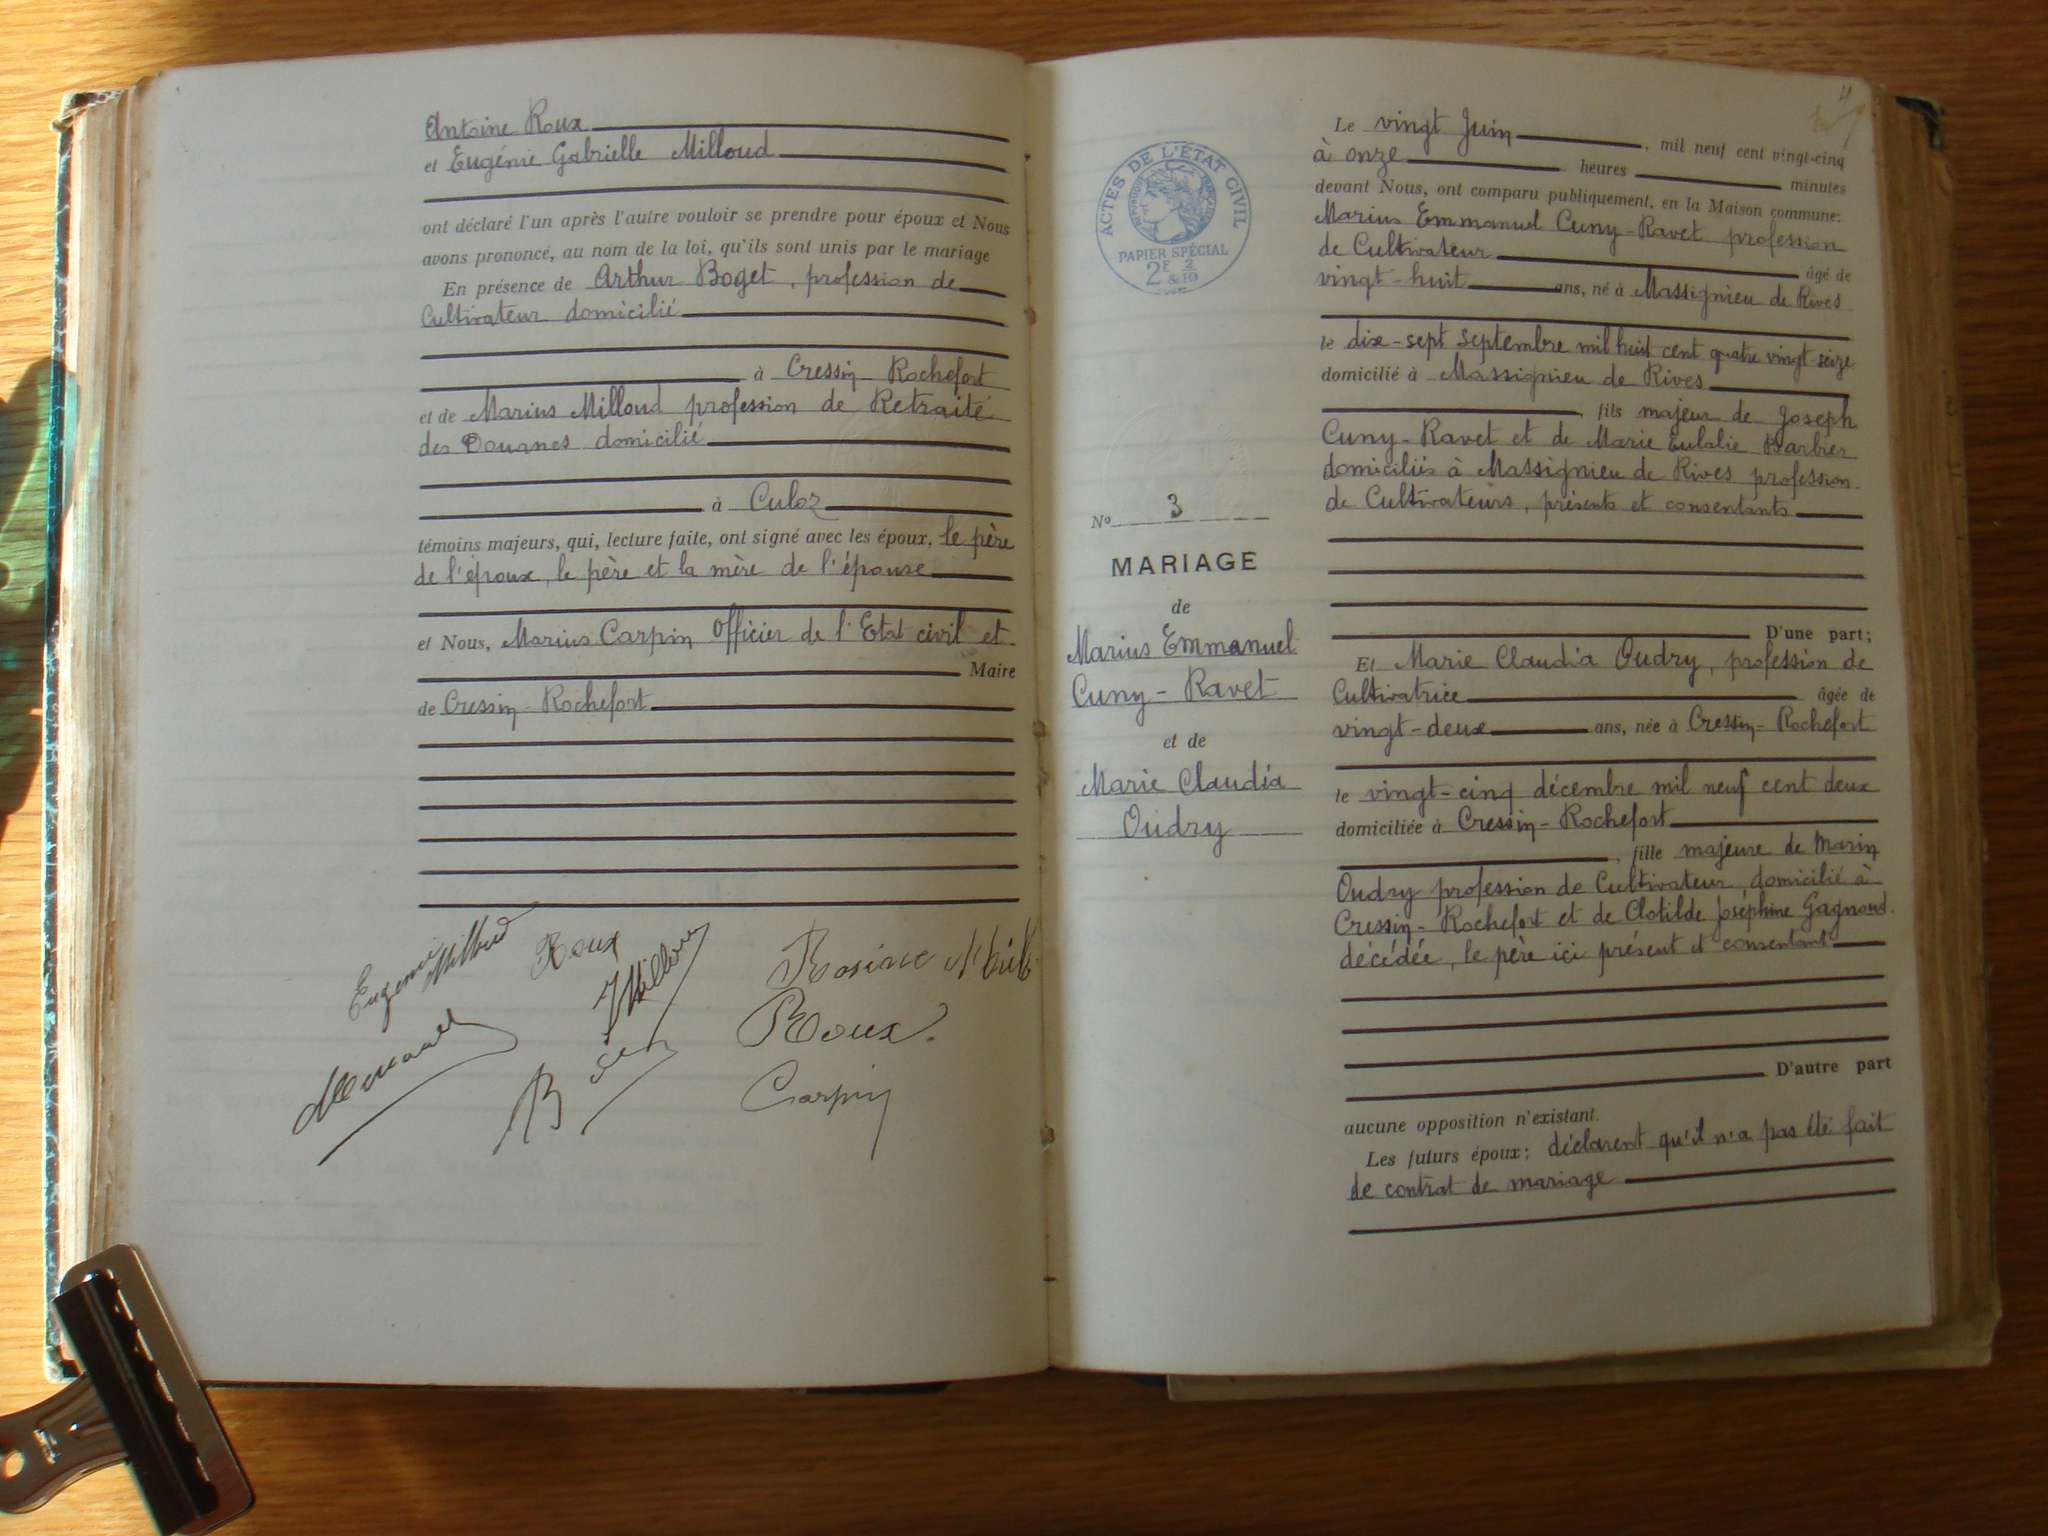 Antoine Roux
et Eugénie Gabrielle Milloud
ont déclaré l'un après l'autre vouloir se prendre pour époux et Nous
avons prononcé, au nom de la loi, qu'ils sont unis par le mariage
En présence de Arthur Boget, profession de
Cultivateur domicilié
à Cressin-Rochefort
et de Marius Milloud profession de Retraité
des Douanes domicilié
à Culoz
témoins majeurs, qui, lecture faite, ont signé avec les époux, le père
de l'époux, le père et la mère de l'épouse
et Nous, Marius Carpin Officier de l'Etat civil et
Maire
de Cressin-Rochefort
Eugenie Milloud
Roux
Milloud
Rosine
Roux.
Carpin
4
ACTES DE L'ÉTAT CIVIL
RÉPUBLIQUE FRANÇAISE
PAPIER SPÉCIAL
2F 2/10
&
No 3
MARIAGE
de
Marius Emmanuel
Cuny-Ravet
et de
Marie Claudia
Oudry
Le vingt Juin, mil neuf cent vingt-cinq
à onze heures minutes
devant Nous, ont comparu publiquement, en la Maison commune:
Marius Emmanuel Cuny-Ravet profession
de Cultivateur âgé de
vingt-huit ans, né à Massignieu de Rives
le dix-sept septembre mil huit cent quatre vingt-seize
domicilié à Massignieu de Rives
, fils majeur de Joseph
Cuny-Ravet et de Marie Eulalie Barbier
domiciliés à Massignieu de Rives profession
de Cultivateurs, présents et consentants
D'une part;
Et Marie Claudia Oudry, profession de
Cultivatrice âgée de
vingt-deux ans, née à Cressin-Rochefort
le vingt-cinq décembre mil neuf cent deux
domiciliée à Cressin-Rochefort
, fille majeure de Marin
Oudry profession de Cultivateur, domicilié à
Cressin-Rochefort et de Clotilde Joséphine Gagnoud
décédée, le père ici présent et consentant
D'autre part
aucune opposition n'existant.
Les futurs époux; déclarent qu'il n'a pas été fait
de contrat de mariage